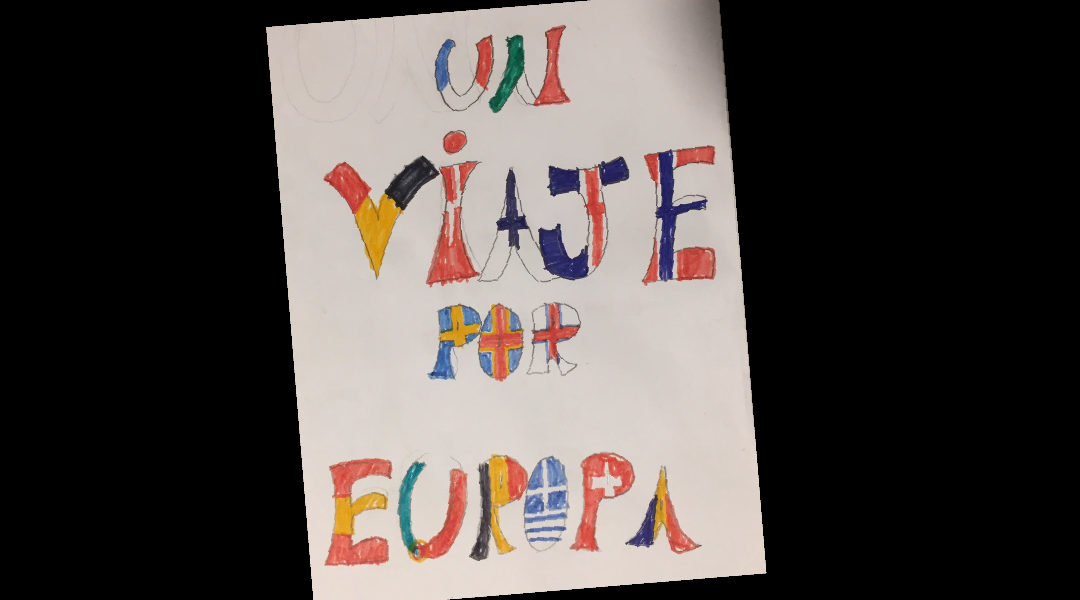 UN
ViAJE
POR
EUROPA